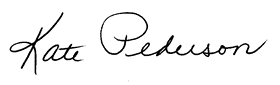 Kate Pederson